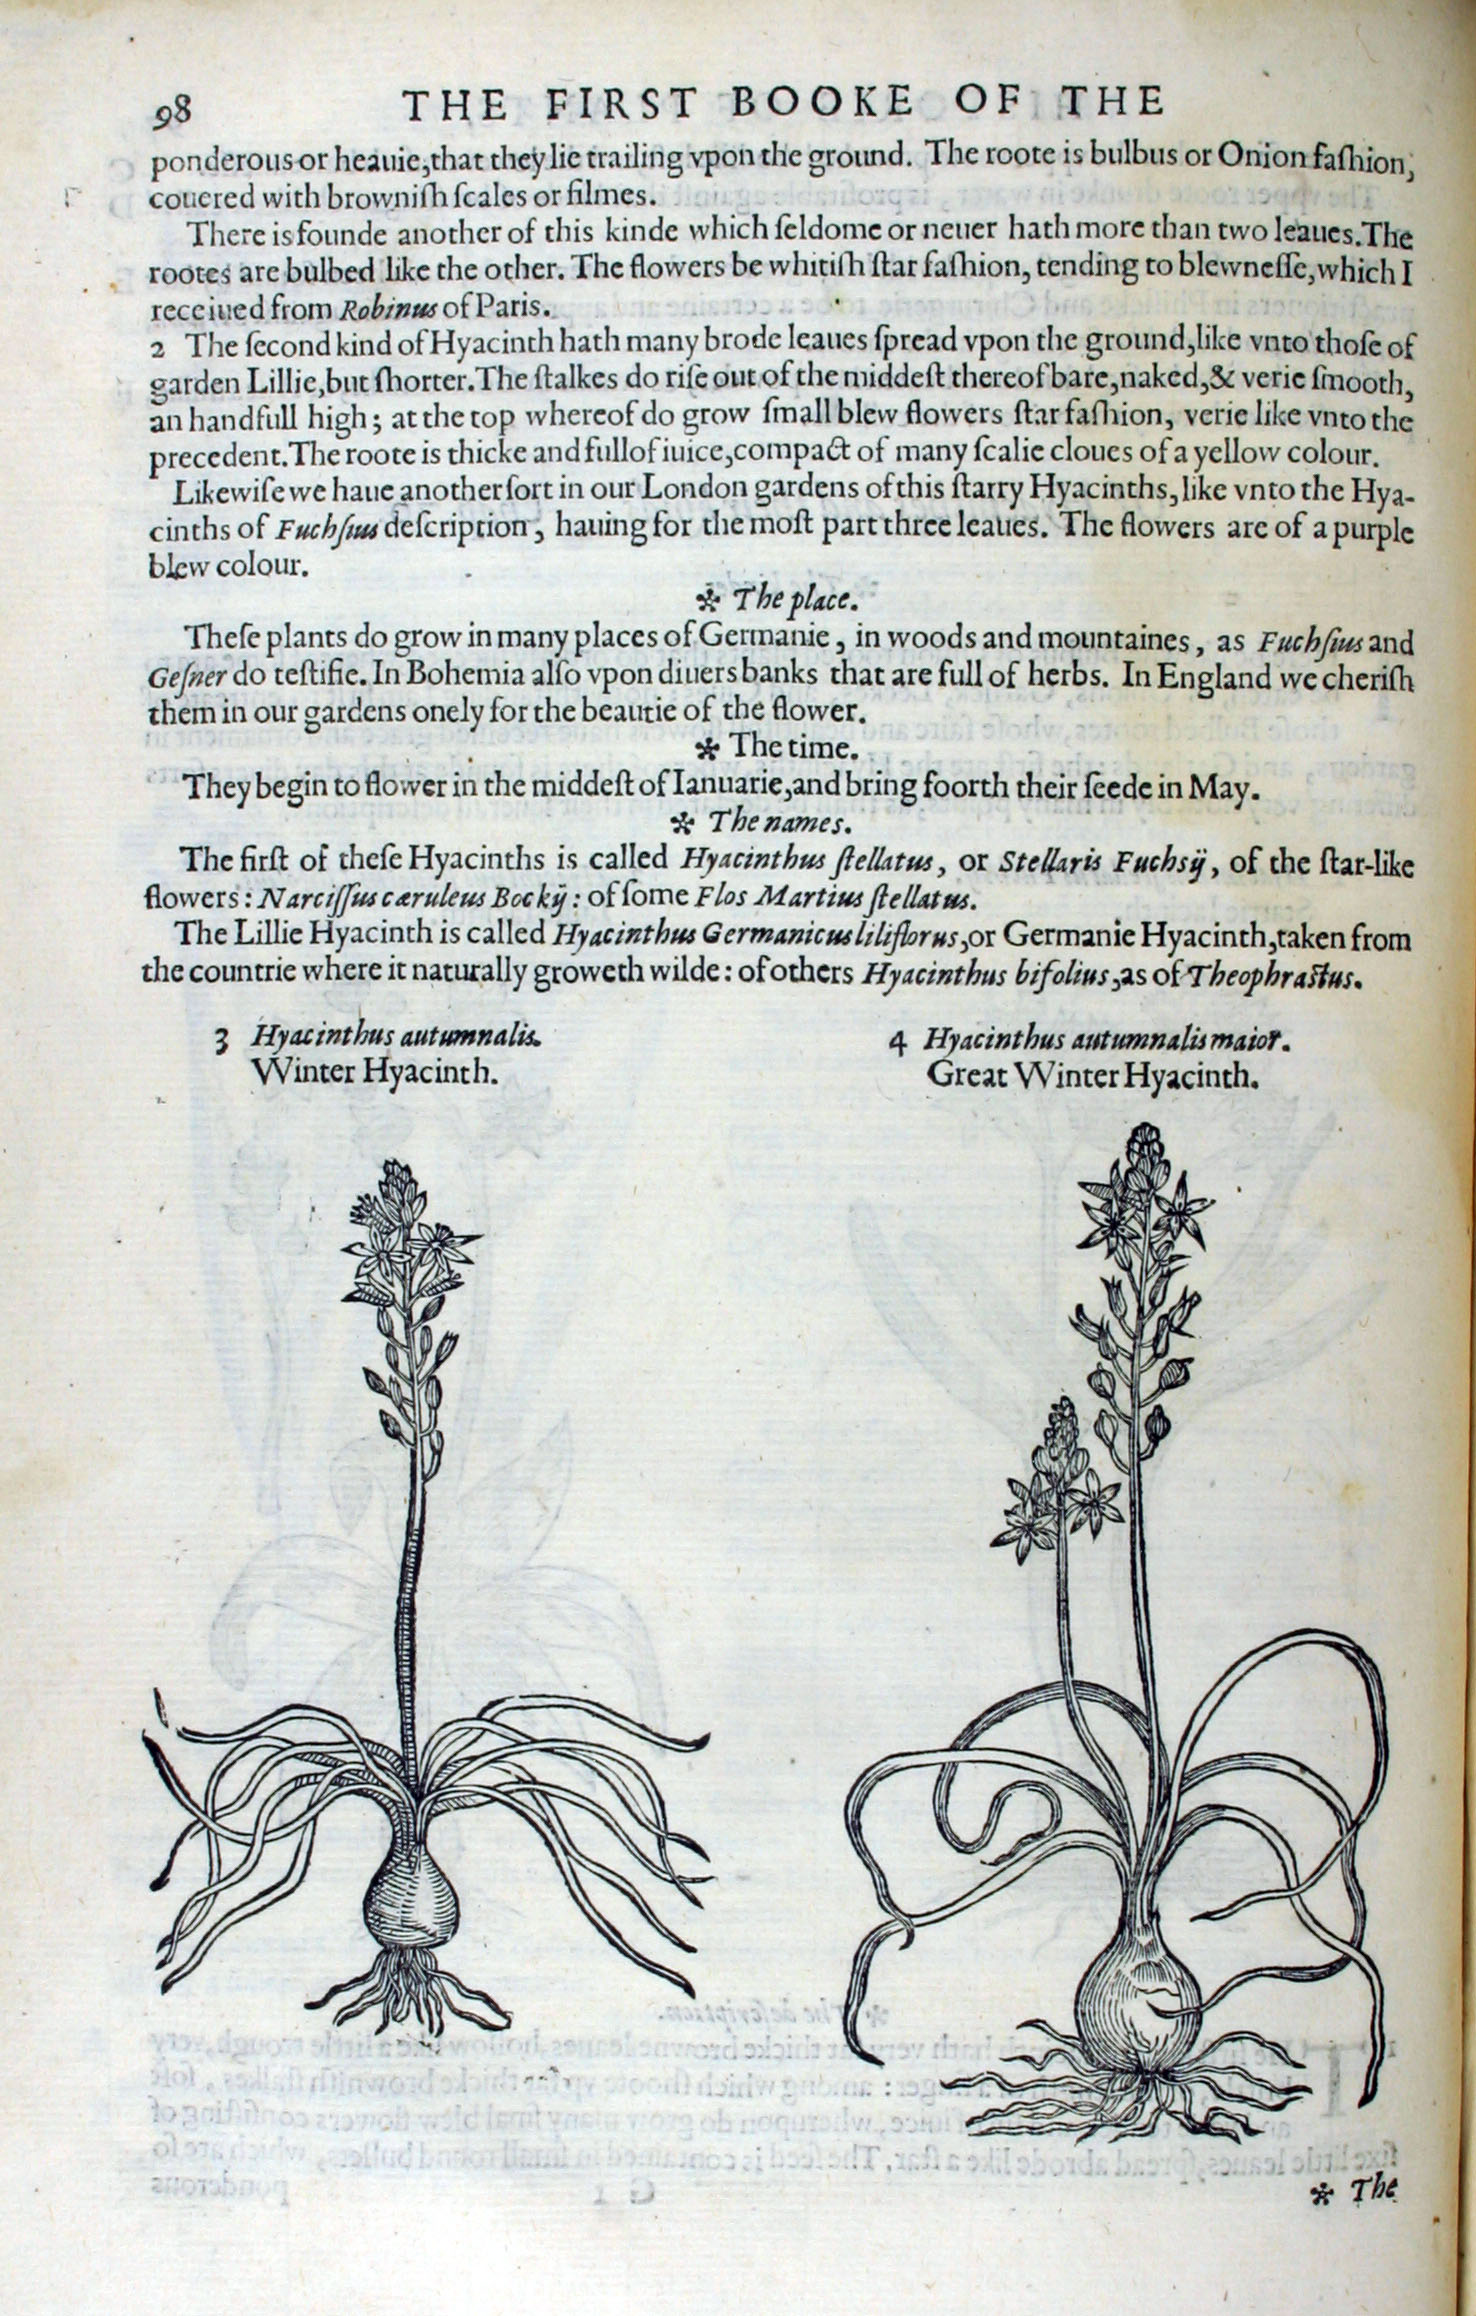 98 THE FIRST BOOKE OF THE
ponderous or heauie, that they lie trailing vpon the ground. The roote is bulbus or Onion faſhion,
couered with browniſh ſcales or filmes.
There is founde another of this kinde which ſeldome or neuer hath more than two leaues. The
rootes are bulbed like the other. The flowers be whitiſh ſtar faſhion, tending to blewneſſe, which I
receiued from Robinus of Paris.
2 The ſecond kind of Hyacinth hath many brode leaues ſpread vpon the ground, like vnto thoſe of
garden Lillie, but ſhorter. The ſtalkes do riſe out of the middeſt thereof bare, naked, & verie ſmooth,
an handfull high; at the top whereof do grow ſmall blew flowers ſtar faſhion, verie like vnto the
precedent. The roote is thicke and full of iuice, compact of many ſcalie cloues of a yellow colour.
Likewiſe we haue another ſort in our London gardens of this ſtarry Hyacinths, like vnto the Hya-
cinths of Fuchſius deſcription, hauing for the moſt part three leaues. The flowers are of a purple
blew colour.
* The place.
Theſe plants do grow in many places of Germanie, in woods and mountaines, as Fuchſius and
Geſner do teſtifie. In Bohemia alſo vpon diuers banks that are full of herbs. In England we cheriſh
them in our gardens onely for the beautie of the flower.
* The time.
They begin to flower in the middeſt of Ianuarie, and bring foorth their ſeede in May.
* The names.
The firſt of theſe Hyacinths is called Hyacinthus ſtellatus, or Stellaris Fuchsij, of the ſtar-like
flowers: Narciſſus cæruleus Bockij: of ſome Flos Martius ſtellatus.
The Lillie Hyacinth is called Hyacinthus Germanicus liliflorus, or Germanie Hyacinth, taken from
the countrie where it naturally groweth wilde: of others Hyacinthus bifolius, as of Theophraſtus.
3 Hyacinthus autumnalis.
Winter Hyacinth.
4 Hyacinthus autumnalis maior.
Great Winter Hyacinth.
* The